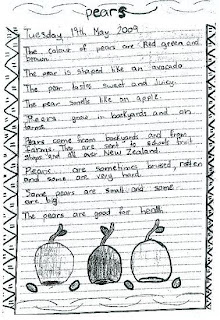 pears
Tuesday 19th May 2009
The colour of pears are Red green and
brown.
The pear is shaped like an avocado
The pear tastes sweet and Juicy.
The pear smells like an apple.
Pears grow in backyards and on
farms.
Pears come from backyards and from
farms. They are sent to schools fruit
shops and all over New Zealand.
Pears are sometimes bruised, rotten
and some are very hard.
Some pears are small and some
are big
The pears are good for health.